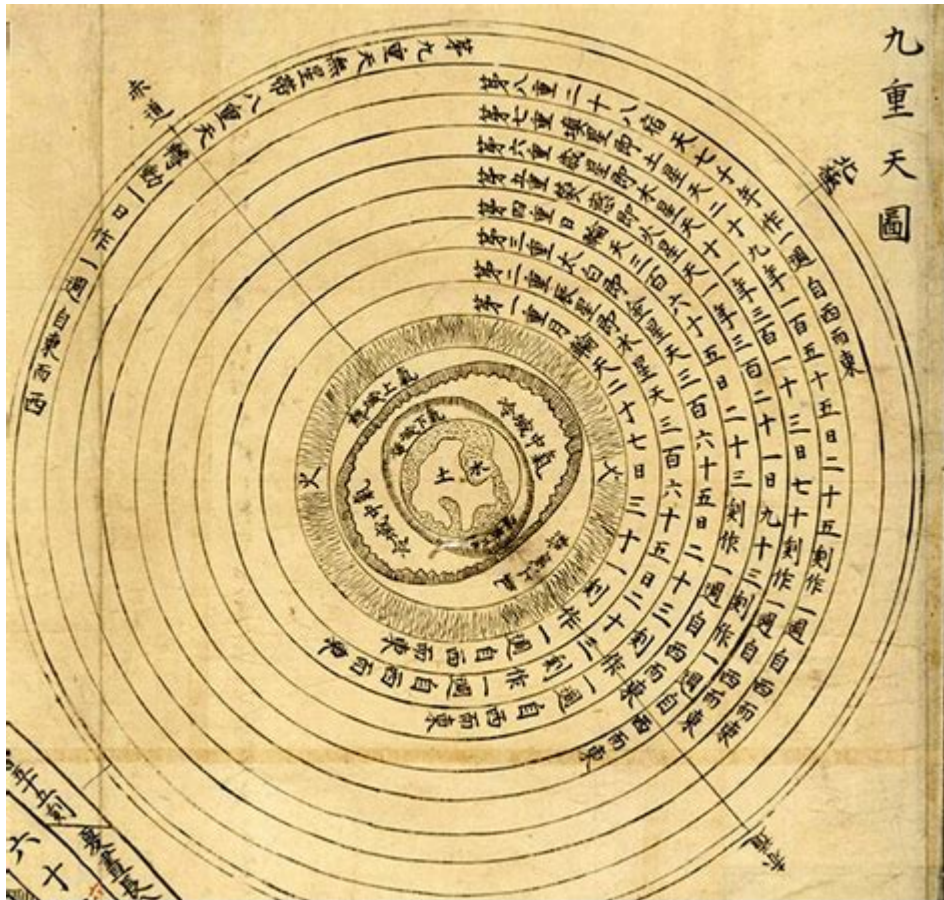 九重天圖
第九重天無星帶八重天轉動一日作一週自東而西
第八重二十八宿天七千年作一週自西而東
第七重填星即土星天二十九年一百五十五日二十五刻作一週自西而東
第六重歲星即木星天十一年三百一十三日七十刻作一週自西而東
第五重熒惑即火星天一年三百二十一日九十三刻作一週自西而東
第四重日輪天三百六十五日二十三刻作一週自西而東
第三重太白即金星天三百六十五日二十三刻作一週自西而東
第二重辰星即水星天三百六十五日二十三刻作一週自西而東
第一重月輪天二十七日三十一刻作一週自西而東
赤道
赤道
火
火
熱域上氣
冷域中氣
冷域中氣
下氣
土
水
六十